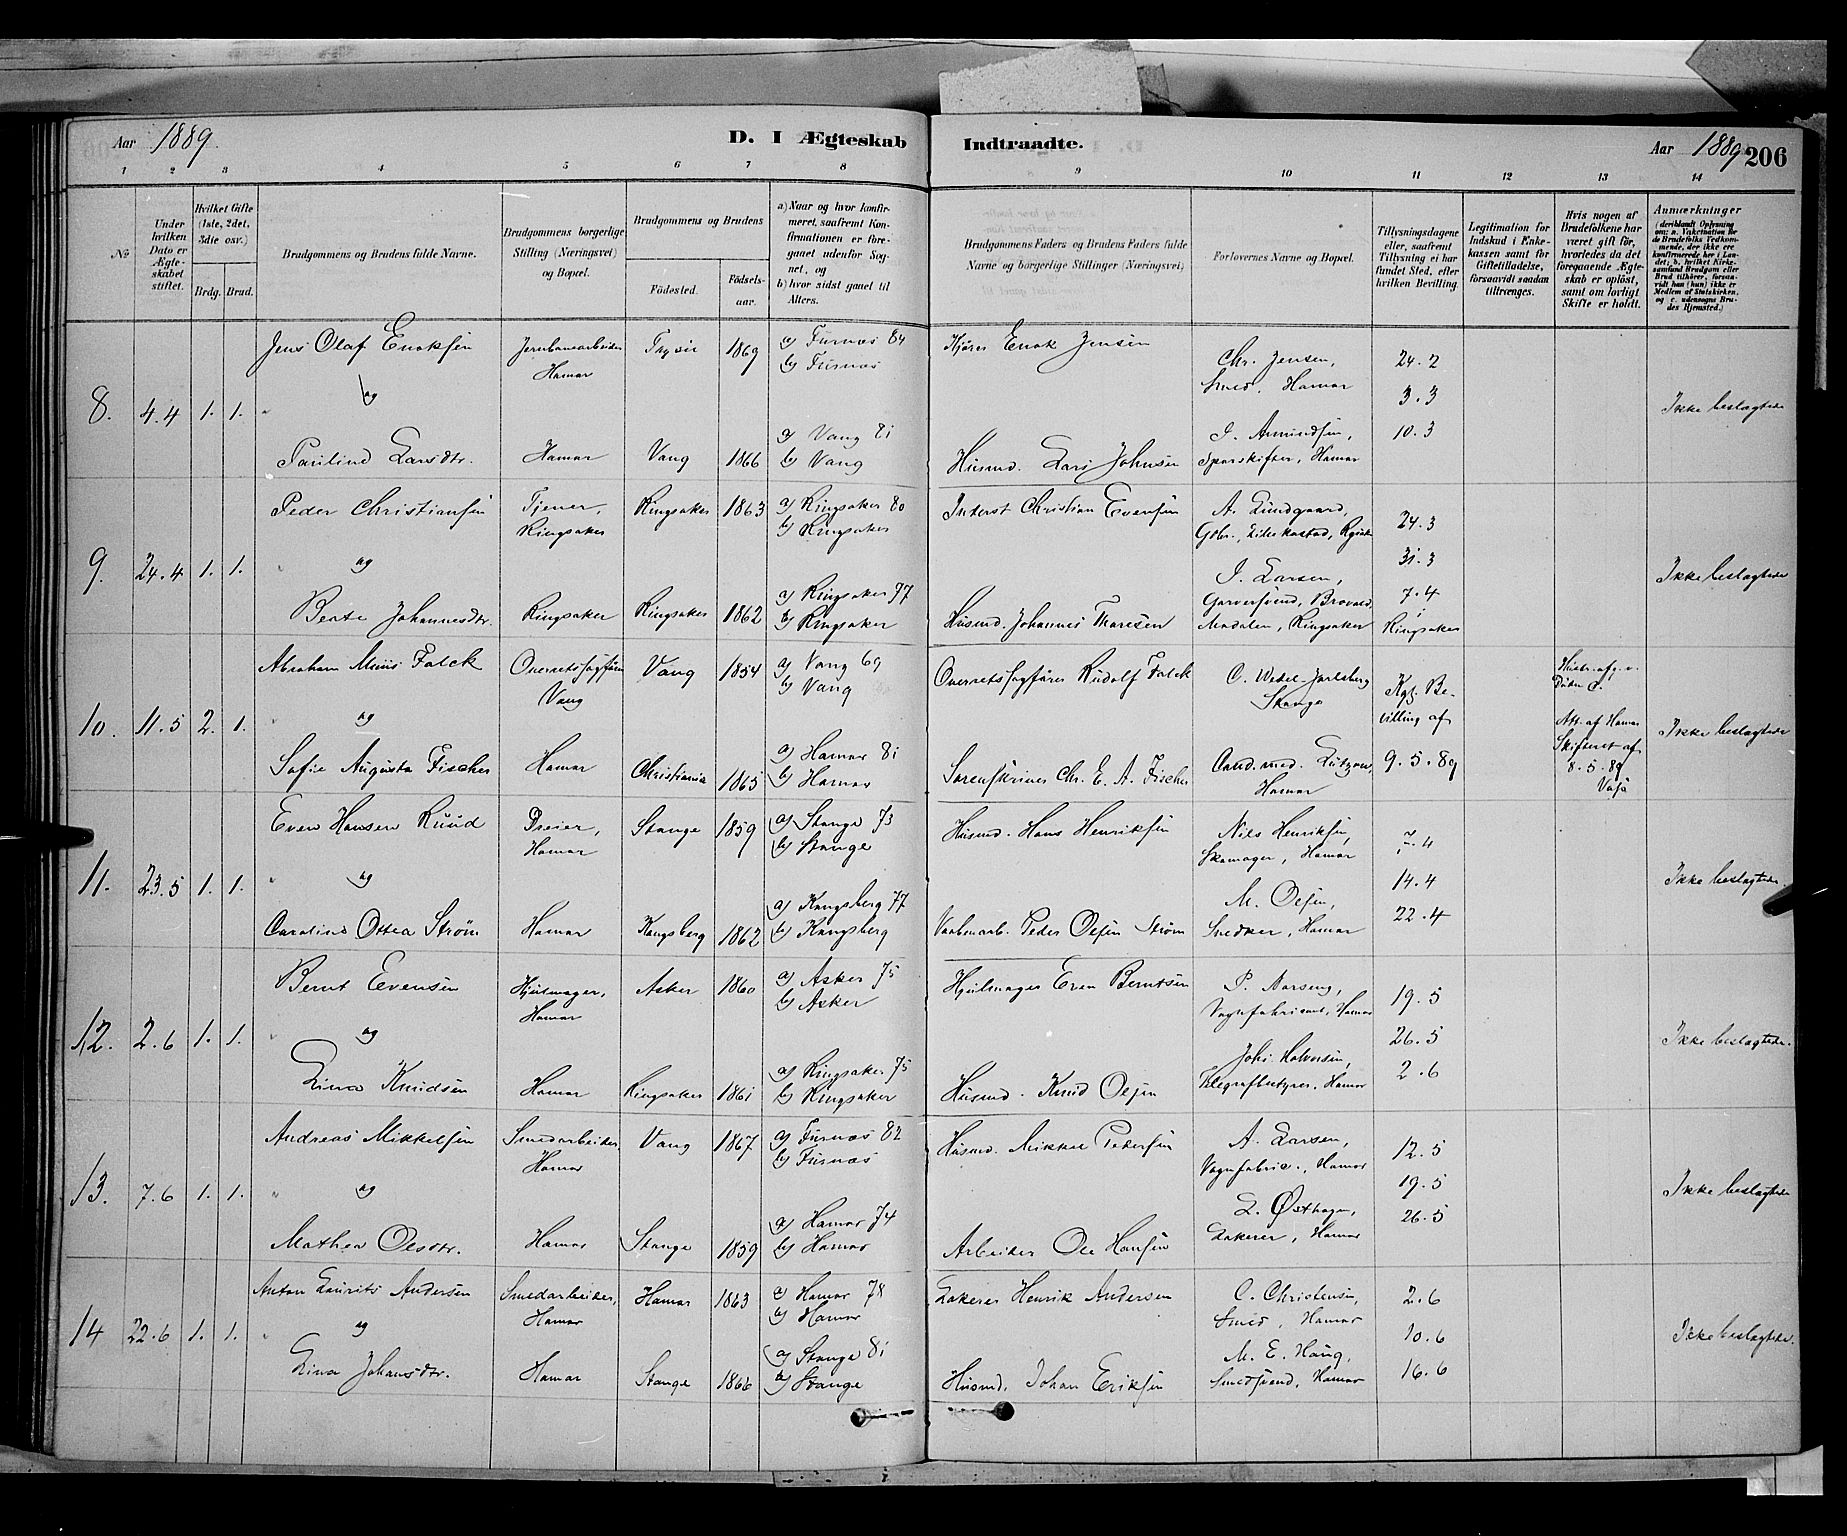 Aar 1889.
D. I Ægteskab
Indtraadte.
Aar 1889
206
1 2 3 4 5 6 7 8 9 10 11 12 13 14
№
Under hvilken Dato er Ægteskabet stiftet.
Hvilket Gifte (1ste, 2det, 3die osv.)
Brdg. Brud.
Brudgommens og Brudens fulde Navne.
Brudgommens borgerlige Stilling (Næringsvei) og Bopæl.
Brudgommens og Brudens
Fødested.
Fødselsaar.
a) Naar og hvor konfirmeret, saafremt Konfirmationen er foregaaet udenfor Sognet, og
b) hvor sidst ganet til Alters.
Brudgommens Faders og Brudens Faders fulde Navne og borgerlige Stillinger (Næringsvei)
Forlovernes Navne og Bopæl.
Tillysningsdagene eller, saafremt Tillysning ei har fundet Sted, efter hvilken Bevilling.
Legitimation for Indskud i Enkekassen samt for Giftetilladelse, forsaavidt saadan tiltrænges.
Hvis nogen af Brudefolkene har været gift før, hvorledes da det foregaaende Ægteskab er opløst, samt om lovligt Skifte er holdt.
Anmærkninger
(deriblandt Oplysning om: a. Vakcination for de Brudefolks Vedkommende, der ikke ere konfirmerede her i Landet; b. hvilket Kirkesamfund Brudgom eller Brud tilhører, forsaavidt han (hun) ikke er Medlem af Statskirken, og c. udensogns Brudes Hjemsted.)
8. 4.4 1. 1.
Jens Olaf Enoksen
Jernbanearbeider Hamar
1869
a) Furnæs 84
b) Furnæs
Kjører Enok Jensen
Chr. Jensen, Smed, Hamar
24.2
3.3
10.3
og
Pauline Larsdtr.
Hamar
Vang
1866
a) Vang 81
b) Vang
Husmd. Lars Johnsen
J. Amundsen, Sporskifter, Hamar
Ikke beslægtede
9. 24.4 1. 1.
Peder Christiansen
Tjener, Ringsaker
Ringsaker
1863
a) Ringsaker 80
b) Ringsaker
Inderst Christian Evensen
A. Lundgaard,
24.3
31.3
7.4
Ringsaker
og
Beate Johannesdtr.
Ringsaker
Ringsaker
1862
a) Ringsaker 77
b) Ringsaker
Husmd. Johannes Thoresen
J. Larsen, Garversvend, Brovald, Mesdalen, Ringsaker
Ikke beslægtede
10. 11.5 2. 1.
Abraham Falck
Overretssagfører Vang
Vang
1854
a) Vang 69
b) Vang
Overretssagfører Rudolf Falck
C. Wedel-Jarlsberg Stange
Kgl. Bevilling af 9.5.89
og
Sofie Augusta Fischer
Hamar
Christiania
1865
a) Hamar 81
b) Hamar
Sorenskriver Chr. E. A. Fischer
Cand. med. Lützow, Hamar
Att. af Hamar Skifteret af 8.5.89
Ikke beslægtede
11. 23.5 1. 1.
Even Hansen Ruud
Dreier, Hamar
Stange
1859
a) Stange 73
b) Stange
Husmd. Hans Henriksen
Nils Henriksen, Skomager, Hamar
7.4
14.4
22.4
og
Caroline Ottea Strøm
Hamar
Kongsberg
1862
a) Kongsberg 77
b) Kongsberg
Vaabenarb. Peder Olsen Strøm
M. Olsen, Snedker, Hamar
Ikke beslægtede.
12. 2.6 1. 1.
Bernt Evensen
Hjulmager, Hamar
Asker
1860
a) Asker 75
b) Asker
Hjulmager Even Berntsen
P. Narseng, Vognfabricant, Hamar
19.5
26.5
2.6
og
Lina Knudsen
Hamar
Ringsaker
1861
a) Ringsaker 75
b) Ringsaker
Husmd. Knud Olsen
Johs. Halvorsen, Telegrafbestyrer, Hamar
Ikke beslægtede.
13. 7.6 1. 1.
Andreas Mikkelsen
Smedarbeider, Hamar
Vang
1867
a) Furnæs 82
b) Furnæs
Husmd. Mikkel Pedersen
A. Larsen, Vognfabric., Hamar
12.5
19.5
26.5
og
Mathea Olsdtr.
Hamar
Stange
1859
a) Hamar 74
b) Hamar
Arbeider Ole Hansen
L. Østhagen, Lakerer, Hamar
Ikke beslægtede
14 22.6 1. 1.
Anton Laurits Andersen
Smedarbeider, Hamar
Hamar
1863
a) Hamar 78
b) Hamar
Lakerer Henrik Andersen
C. Christensen, Smed, Hamar
2.6
10.6
16.6
og
Lina Johansdtr.
Hamar
Stange
1866
a) Stange 81
b) Stange
Husmd. Johan Eriksen
M. E. Haug, Smedsvend, Hamar
Ikke beslægtede.